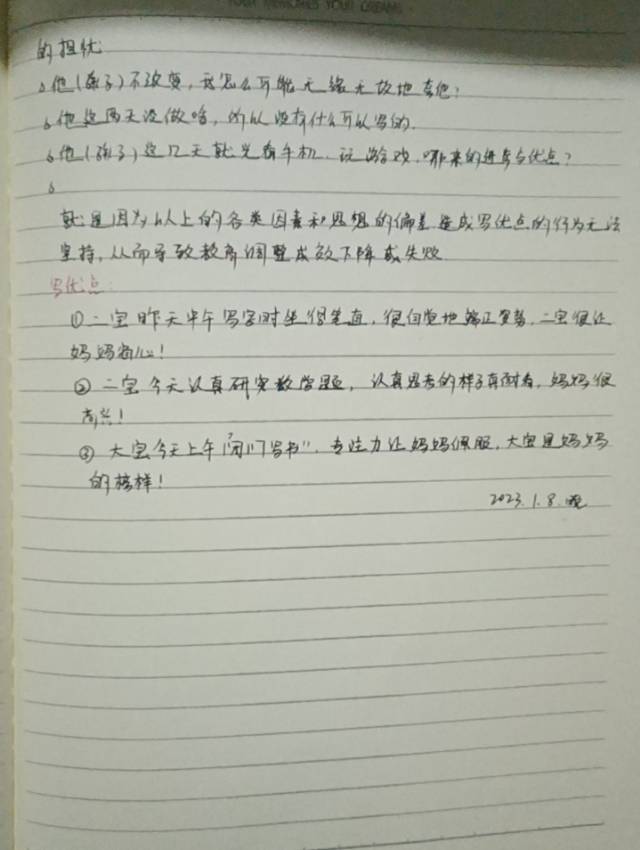 YOUR MEMORIES YOUR DREAMS
的担忧
△他(孩子)不改变,我怎么可能无缘无故地夸他?
△他这两天没做啥,所以没有什么可以写的.
△他(孩子)这几天就光看手机、玩游戏,哪来的进步与优点?
△
就是因为以上的各类因素和思想的偏差,造成写优点的行为无法
坚持,从而导致教育调整成效下降或失败
写优点:
①二宝昨天中午写字时坐得笔直,很自觉地端正姿势,二宝很让
妈妈省心!
②二宝今天认真研究数学题,认真思考的样子真耐看,妈妈很
高兴!
③大宝今天上午"闭门写书",专注力让妈妈佩服,大宝是妈妈
的榜样!
2023.1.8.晚